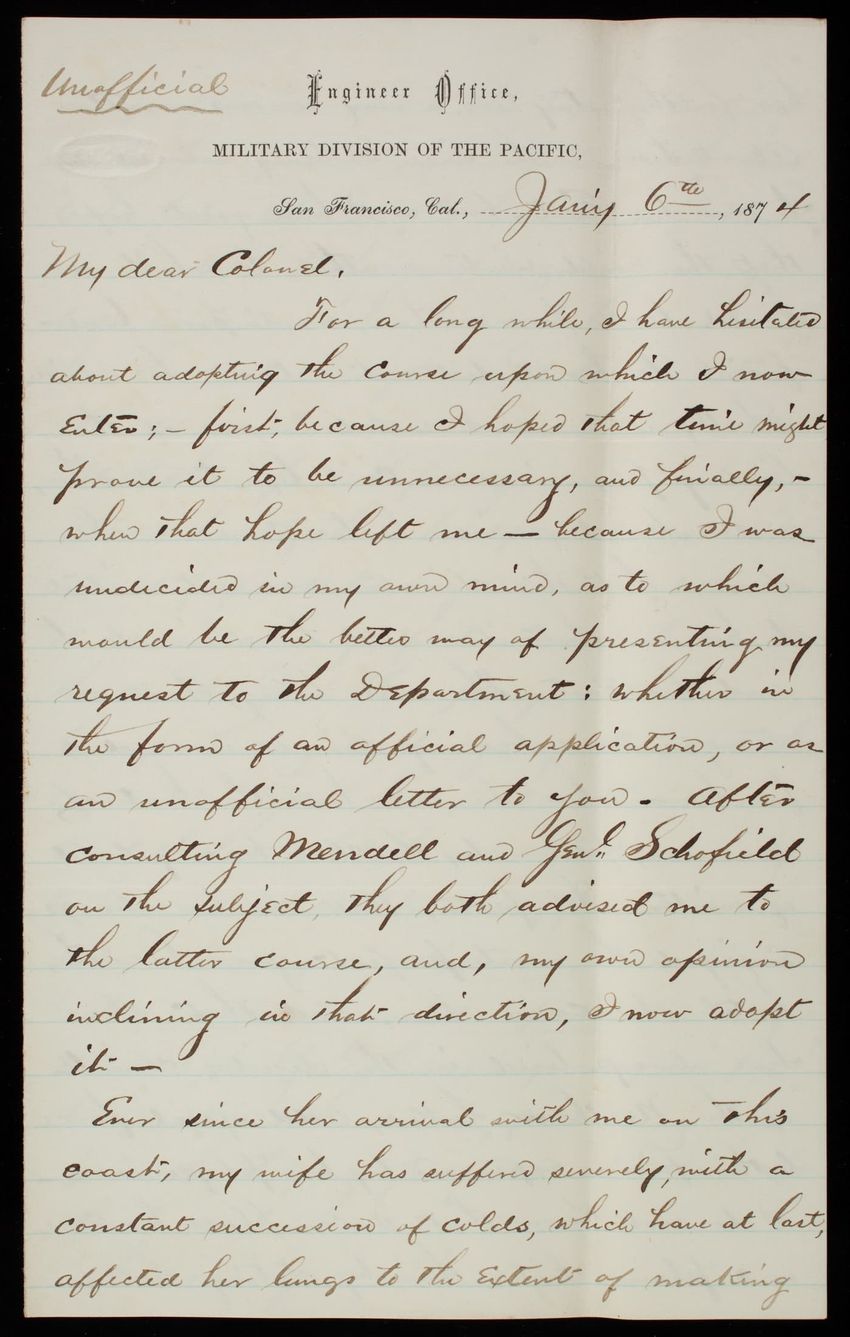 Unofficial
Engineer Office,
MILITARY DIVISION OF THE PACIFIC,
San Francisco, Cal., Jan'y 6th, 1874
My dear Colonel.
For a long while, I have hesitated
about adopting the course upon which I now
enter; – first, because I hoped that time might
prove it to be unnecessary, and finally, –
when that hope left me — because I was
undecided in my own mind, as to which
would be the better way of presenting my
request to the Department: whether in
the form of an official application, or as
an unofficial letter to you. After
consulting Mendell and Genl. Schofield
on the subject, they both advised me to
the latter course, and, my own opinion
inclining in that direction, I now adopt
it —
Ever since her arrival with me on this
coast, my wife has suffered severely, with a
constant succession of colds, which have at last,
affected her lungs to the extent of making